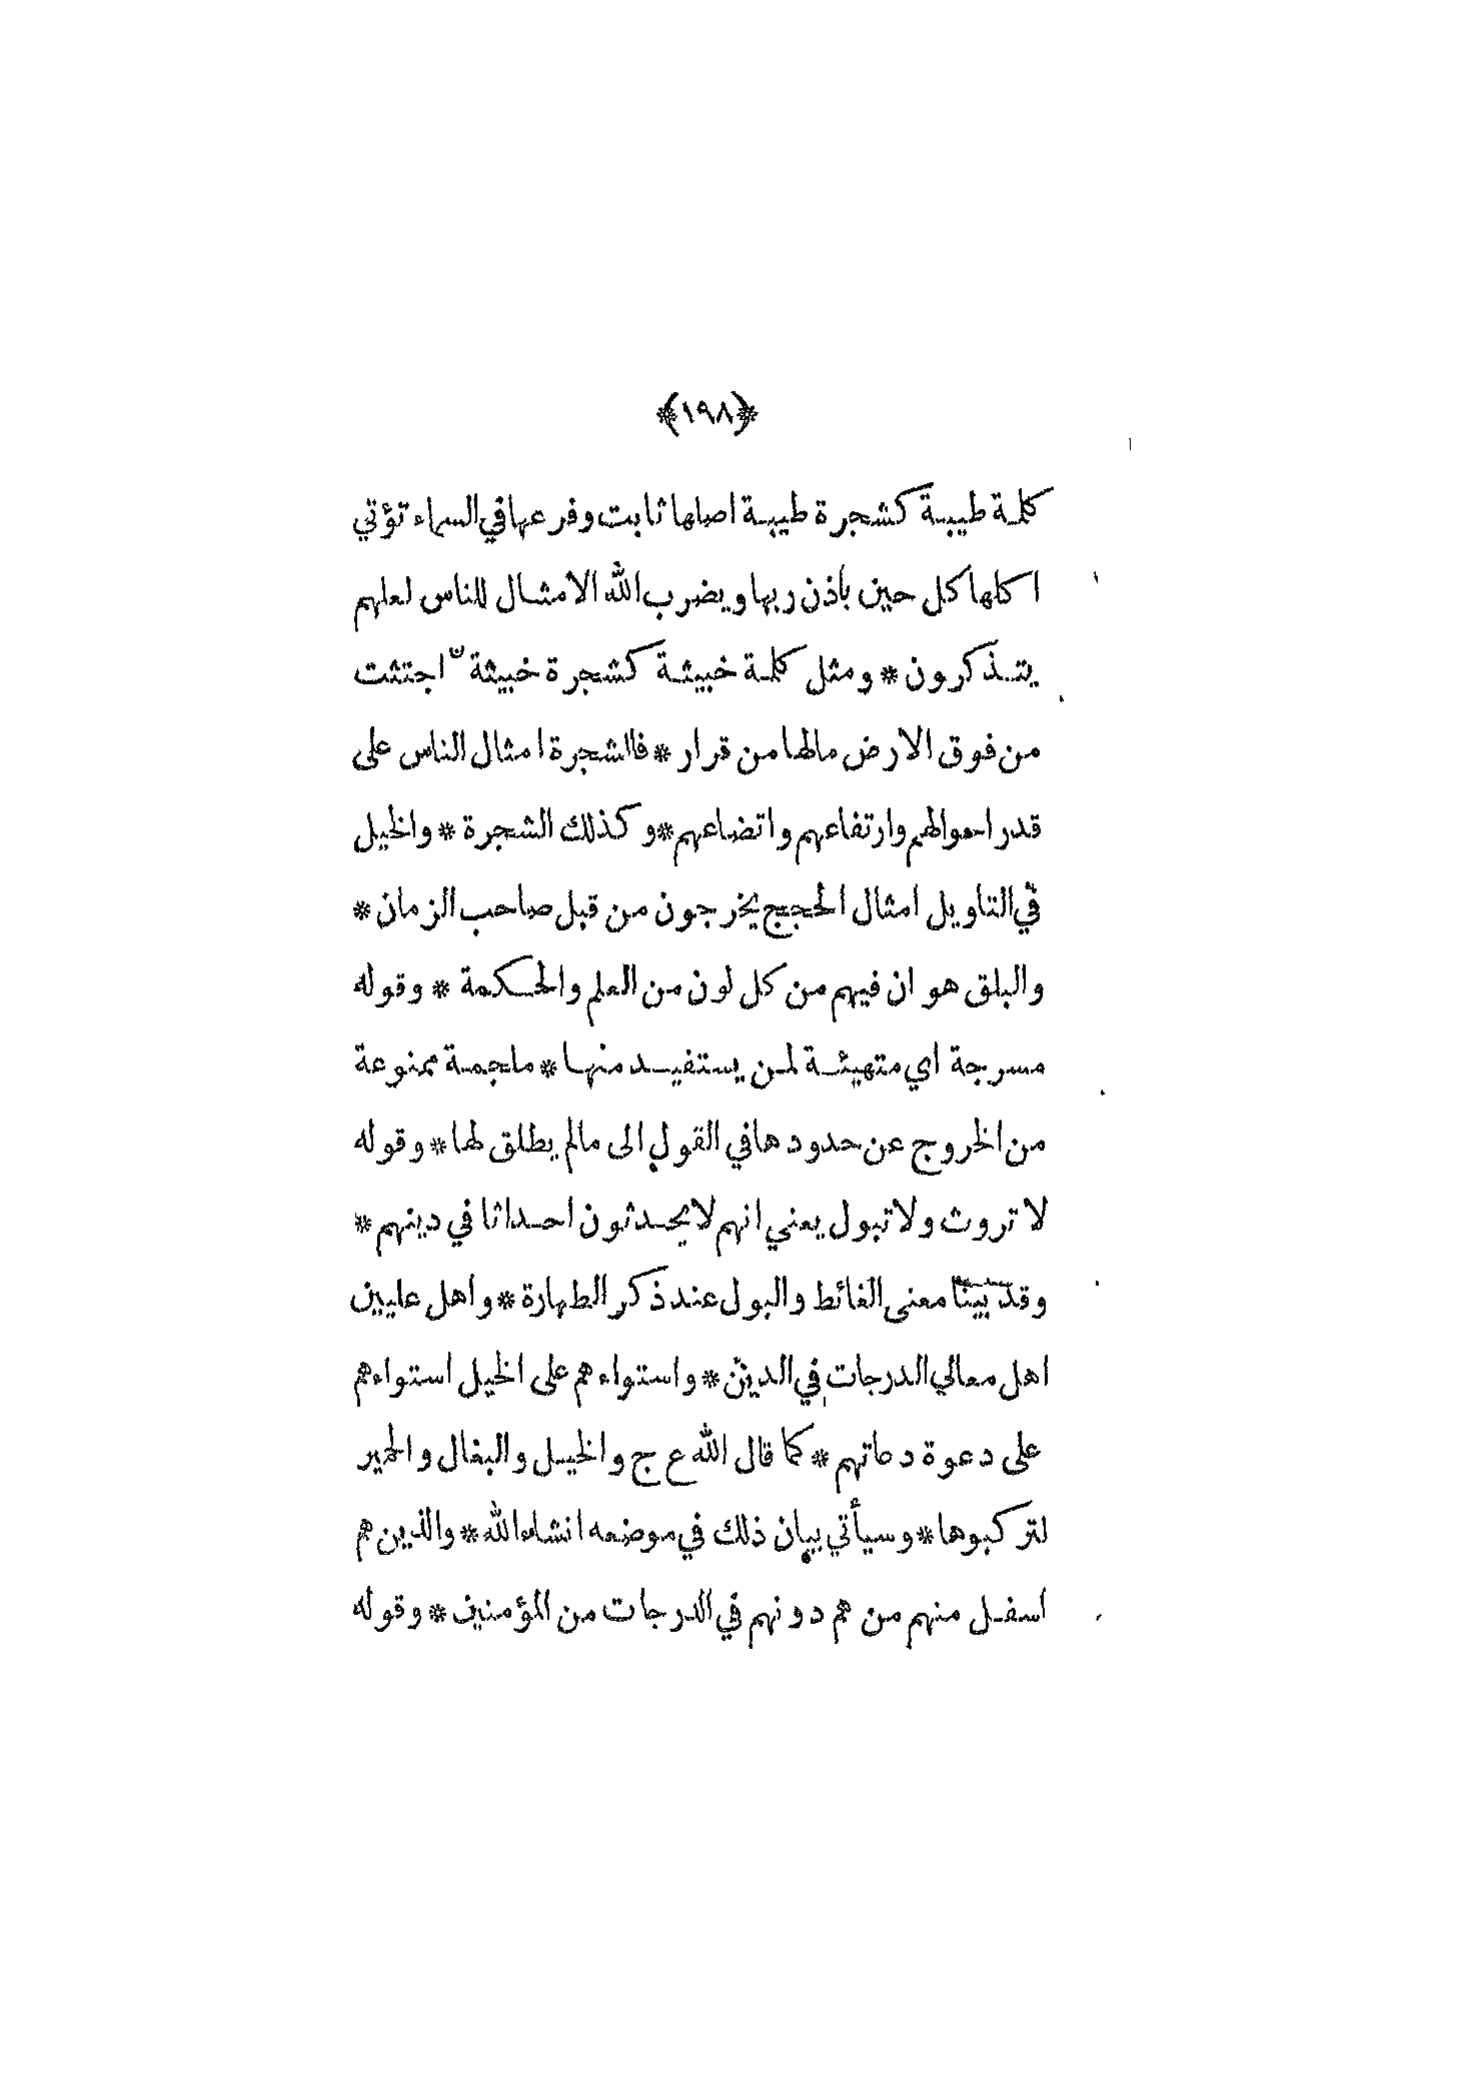 ﴿١٩٨﴾
كلمة طيبة كشجرة طيبة اصلها ثابت وفرعها في السماء تؤتي
اكلها كل حين بأذن ربها ويضرب الله الامثال للناس لعلهم
يتذكرون * ومثل كلمة خبيثة كشجرة خبيثة ن اجتثت
من فوق الارض مالها من قرار * فالشجرة امثال الناس على
قدر احوالهم وارتفاعهم واتضاعهم * وكذلك الشجرة * والخيل
في التاويل امثال الحجج يخرجون من قبل صاحب الزمان *
والبلق هو ان فيهم من كل لون من العلم والحكمة * وقوله
مسرجة اي متهيئة لمن يستفيد منها * ملجمة ممنوعة
من الخروج عن حدودها في القول الى مالم يطلق لها * وقوله
لا تروث ولا تبول يعني انهم لا يحدثون احداثا في دينهم *
وقد بينا معنى الغائط والبول عند ذكر الطهارة * واهل عليين
اهل معالي الدرجات في الدين * واستواءهم على الخيل استواءهم
على دعوة دعاتهم * كما قال الله ع ج والخيل والبغال والحمير
لتركبوها * وسيأتي بيان ذلك في موضعه انشاء الله * والذين هم
اسفل منهم من هم دونهم في الدرجات من المؤمنين * وقوله